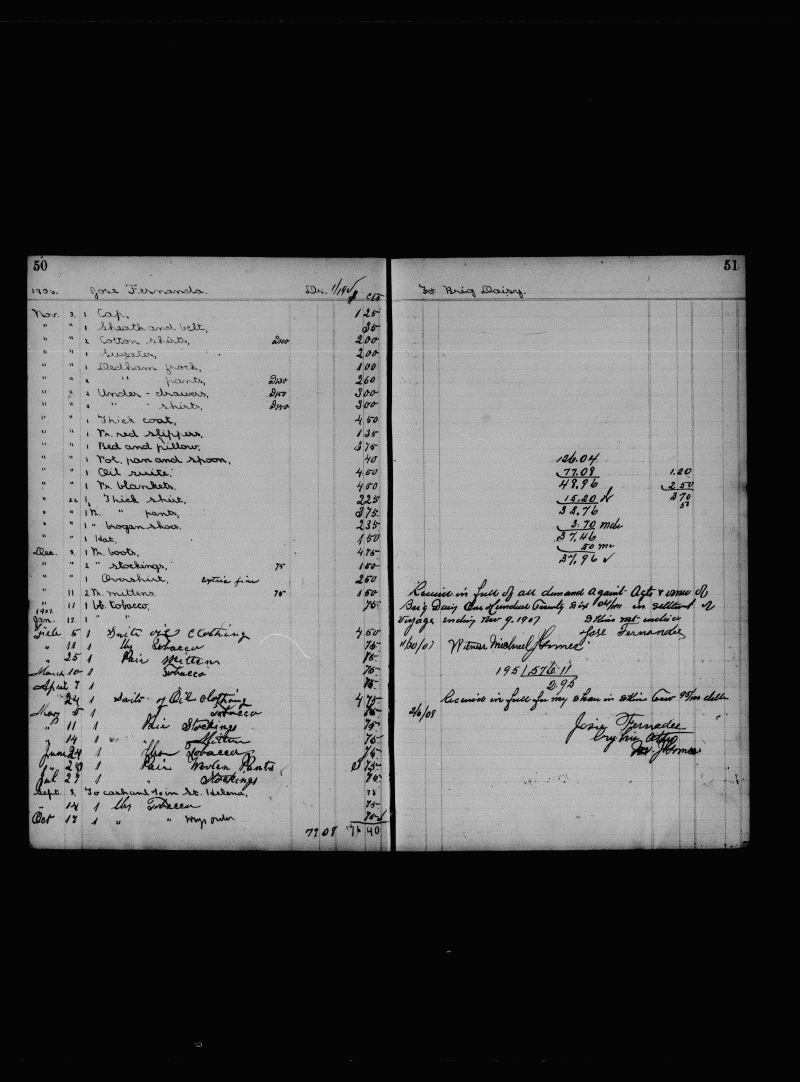 50
1906. Jose Fernanda. Dr. 1/195
$ cts
Nov. 3, 1 Cap, 1 25
" " 1 Sheath and belt, 35
" " 2 Cotton shirts, @100 2 00
" " 1 Sweater, 2 00
" " 1 Dedham frock, 1 00
" " 2 " pants, @130 2 60
" " 2 Under-drawers, @150 3 00
" " 2 " - shirts, @150 3 00
" " 1 Thick coat, 4 50
" " 1 Pr. red slippers, 1 35
" " 1 Bed and pillow, 3 75
" " 1 Pot, pan and spoon, 40
" " 1 Oil suite, 4 50
" " 1 Pr. blankets, 4 50
" 26 1 Thick shirt, 2 25
" " 1 Pr. " pants, 3 75
" " 1 " brogan shoes, 2 35
" " 1 Hat, 1 50
Dec. 3, 1 Pr. boots, 4 75
" " 2 " stockings, 75 1 50
" " 1 Overshirt, extra fine 2 50
" 11 2 Pr. mittens 75 1 50
" 17 1 lb. tobacco, 75
1907.
Jan. 12. 1 " "
Feb 5 1 Suits oil Clothing 4 50
" 11 1 lb Tobacco 75
" 25 1 Pair Mitten 75
March 10 1 Tobacco 75
April 7 1 75
24 1 Suits of Oil Clothing 4 75
May 5 1 Tobacco 75
" 11 1 Pair Stockings 75
14 1 " Mitten 75
June 24 1 Tobacco 75
" 29 1 Pair Wolen Pants 3 75
Jul 27 1 " Stockings 75
Sept. 3. To cash and % in St. Helena, 78
" 14 1 lb Tobacco 75
Oct 17 1 " " 75
77 08 76 40
51
To Brig Daisy.
126.04
77.08 1.20
48.96 2 50
15.20 3 70
33.76
3.70
37.46
50
37.96
Receive in full of all demand against Agts & owner of
Brig Daisy One Hundred Twenty Six 04/100 in settlement of
Voyage ending Nov 9. 1907
Jose Fernandes
11/30/07 Witness Michael J Gomes
195 / 576 11
2.95
2/6/08 Receive in full for my share in Two 95/100 dolls
Josie Fernades
by his Atty
J Gomes